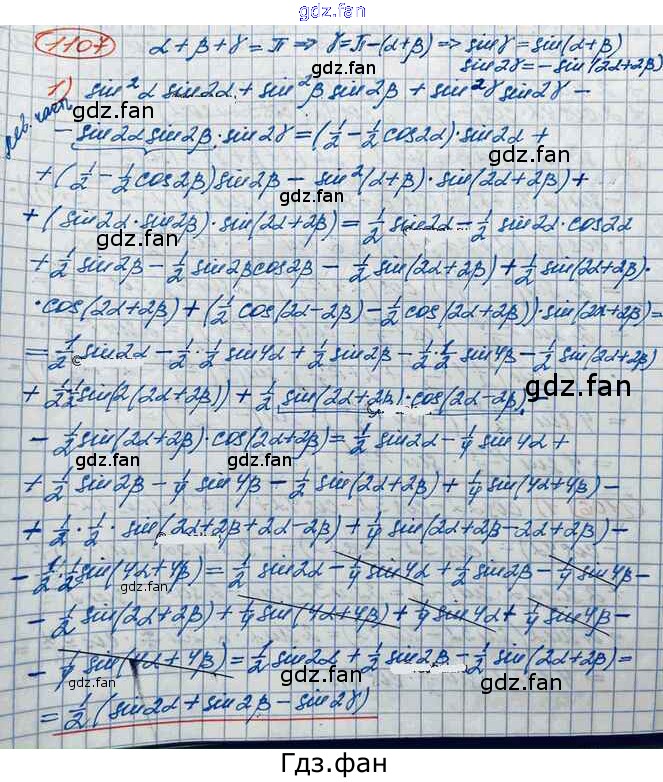 gdz.fan
1107 α + β + γ = π ⇒ γ = π − (α + β) ⇒ sin γ = sin(α + β)
sin 2γ = −sin(2α + 2β)
gdz.fan gdz.fan
1) sin²α sin2α + sin²β sin2β + sin²γ sin2γ −
лев. част
− sin2α sin2β · sin2γ = (1/2 − 1/2 cos2α) · sin2α +
gdz.fan
+ (1/2 − 1/2 cos2β) sin2β − sin²(α + β) · sin(2α + 2β) +
+ (sin2α · sin2β) · sin(2α + 2β) = 1/2 sin2α − 1/2 sin2α · cos2α
gdz.fan gdz.fan
+ 1/2 sin2β − 1/2 sin2β cos2β − 1/2 sin(2α + 2β) + 1/2 sin(2α + 2β) ·
· cos(2α + 2β) + (1/2 cos(2α − 2β) − 1/2 cos(2α + 2β)) · sin(2α + 2β) =
gdz.fan
= 1/2 sin2α − 1/2 · 1/2 sin4α + 1/2 sin2β − 1/2 · 1/2 sin4β − 1/2 sin(2α + 2β)
gdz.fan
+ 1/2 · 1/2 sin(2(2α + 2β)) + 1/2 sin(2α + 2β) · cos(2α − 2β) −
gdz.fan
− 1/2 sin(2α + 2β) · cos(2α + 2β) = 1/2 sin2α − 1/4 sin4α +
gdz.fan gdz.fan
+ 1/2 sin2β − 1/4 sin4β − 1/2 sin(2α + 2β) + 1/4 sin(4α + 4β) −
+ 1/2 · 1/2 · sin(2α + 2β + 2α − 2β) + 1/4 sin(2α + 2β − 2α + 2β) −
gdz.fan
− 1/2 · 1/2 sin(4α + 4β) = 1/2 sin2α − 1/4 sin4α + 1/2 sin2β − 1/4 sin4β −
gdz.fan gdz.fan
− 1/2 sin(2α + 2β) + 1/4 sin(4α + 4β) + 1/4 sin4α + 1/4 sin4β −
− 1/4 sin(4α + 4β) = 1/2 sin2α + 1/2 sin2β − 1/2 sin(2α + 2β) =
gdz.fan gdz.fan
= 1/2 (sin2α + sin2β − sin2γ)
Гдз.фан